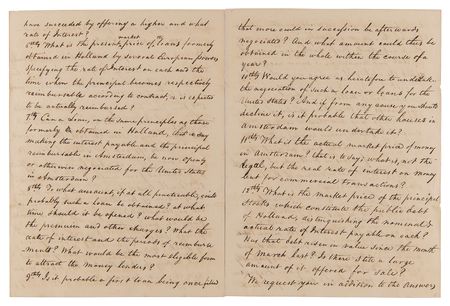 have succeeded by offering a higher and what
rate of Interest?
6th What is the present market price of the loans formerly
obtained in Holland by several European powers
specifying the rate of Interest on each and the
time when the principal becomes respectively
reimbursable according to contract, or is expected
to be actually reimbursed?
7th Can a loan, on the same principles as those
formerly obtained in Holland, that is say
making the interest payable and the principal
reimbursable in Amsterdam, be now openly
or otherwise negociated for the United States
in Amsterdam?
8th To what amount, if at all practicable, could
probably such a loan be obtained? at what
time should it be opened? what would be
the premium and other charges? What the
rate of interest and the periods of reimburse
ments? What would be the most eligible form
to attract the money lenders?
9th Is it probable a first loan being once
that more could in succession be afterwards
negociated? And what amount could thus be
obtained in the whole within the course of a
year?
10th Would you agree as heretofore to undertake
the negociation of such a loan or loans for the
United States? And if from any cause you should
decline it, is it probable that other houses in
Amsterdam would undertake it?
11th What is the actual market price of money
in Amsterdam? that is to say; what is, not the
legal, but the real rate of interest on money
lent for commercial transactions?
12th What is the market price of the principal
Stocks which constitute the public debt
of Holland, distinguishing the nominal &
actual rate of Interest payable on each?
Has that debt risen in value since the month
of March last? Is there still a large
amount of it offered for sale?
We request your in addition to the Answers